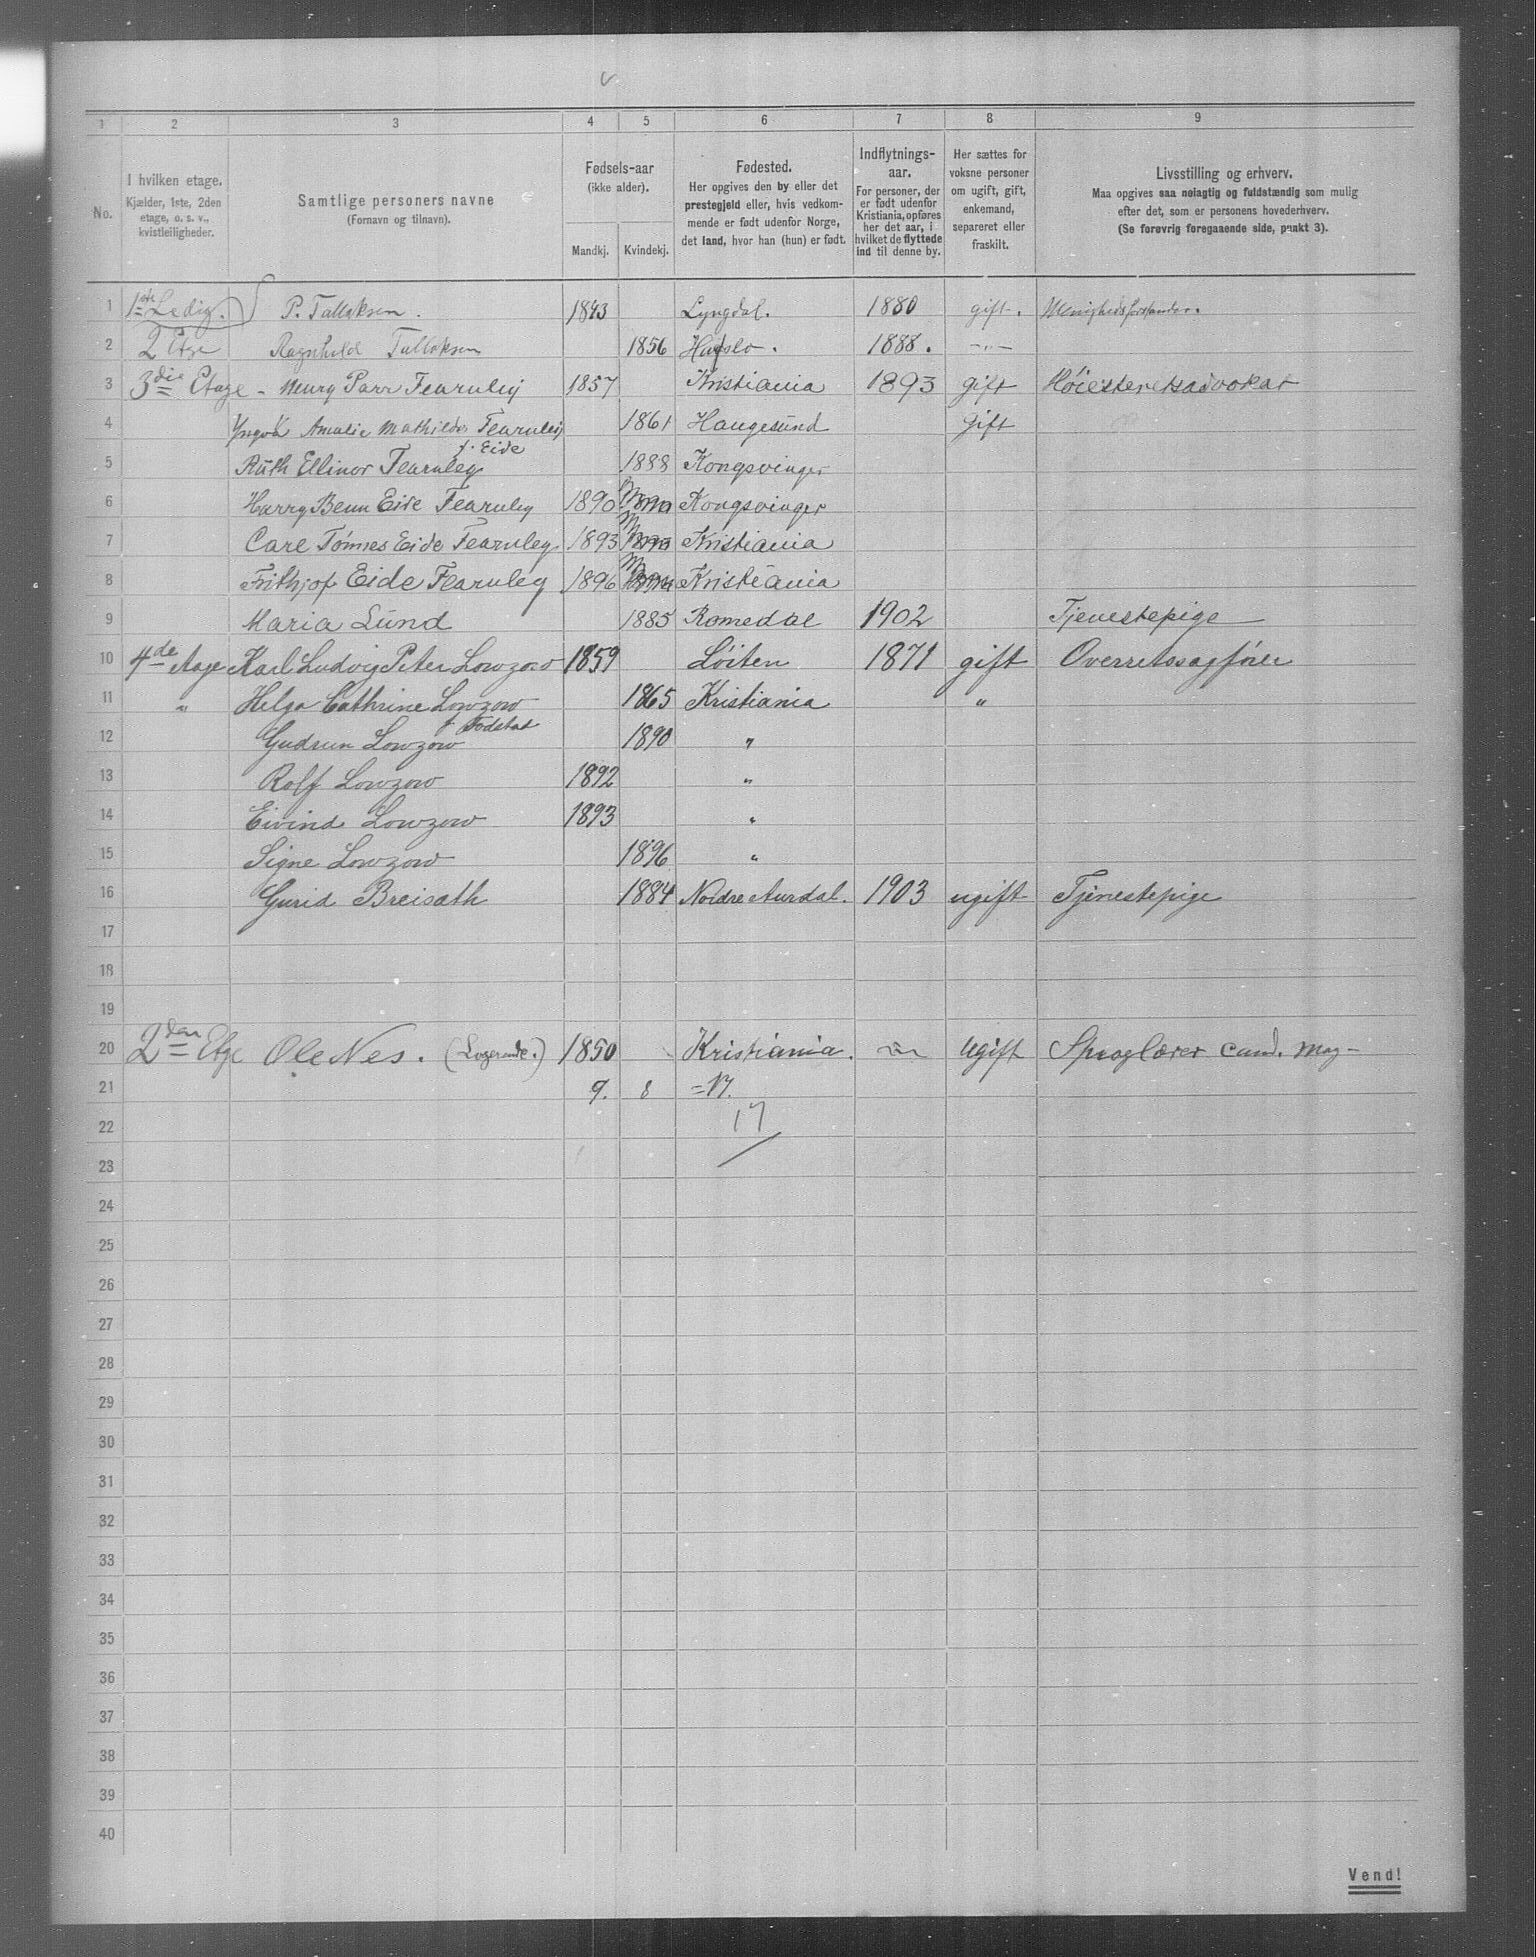 1 2 3 4 5 6 7 8 9
No.
I hvilken etage.
Kjælder, 1ste, 2den
etage, o. s. v.,
kvistleiligheder.
Samtlige personers navne
(Fornavn og tilnavn).
Fødsels-aar
(ikke alder).
Mandkj. Kvindekj.
Fødested.
Her opgives den by eller det
prestegjeld eller, hvis vedkom-
mende er født udenfor Norge,
det land, hvor han (hun) er født.
Indflytnings-
aar.
For personer, der
er født udenfor
Kristiania, opføres
her det aar, i
hvilket de flyttede
ind til denne by.
Her sættes for
voksne personer
om ugift, gift,
enkemand,
separeret eller
fraskilt.
Livsstilling og erhverv.
Maa opgives saa nøiagtig og fuldstændig som mulig
efter det, som er personens hovederhverv.
(Se forøvrig foregaaende side, punkt 3).
1 1ste Ledig. P. Tallaksen. 1843 Lyngdal. 1880 gift. Menighedsforstander.
2 2 Etge Ragnhild Tallaksen 1856 Hafslo. 1888. -"-
3 3die Etage - Henry Parr Fearnley 1857 Kristiania 1893 gift Høiesteretsadvokat
4 Yngva Amalie Mathilde Fearnley 1861 Haugesund gift
f. Eide
5 Ruth Ellinor Fearnley 1888 Kongsvinger
6 Harry Benn Eide Fearnley 1890 Kongsvinger
7 Carl Tönnes Eide Fearnley 1893 Kristiania
8 Frithjof Eide Fearnley 1896 Kristiania
9 Maria Lund 1885 Romedal 1902 Tjenestepige
10 4de Aage Karl Ludvig Peter Lowzow 1859 Löiten 1871 gift Overretssagfører
11 " Helga Cathrine Lowzow 1865 Kristiania "
f. Fodstad
12 Gudrun Lowzow 1890 "
13 Rolf Lowzow 1892 "
14 Eivind Lowzow 1893 "
15 Signe Lowzow 1896 "
16 Gurid Breisæth 1884 Nordre Aurdal. 1903 ugift Tjenestepige
17
18
19
20 2den Etge Ole Nes. (Logerende.) 1850 Kristiania. Ugift Sproglærer cand. mag-
21 9. 8 =17.
22 17
23
24
25
26
27
28
29
30
31
32
33
34
35
36
37
38
39
40
Vend!